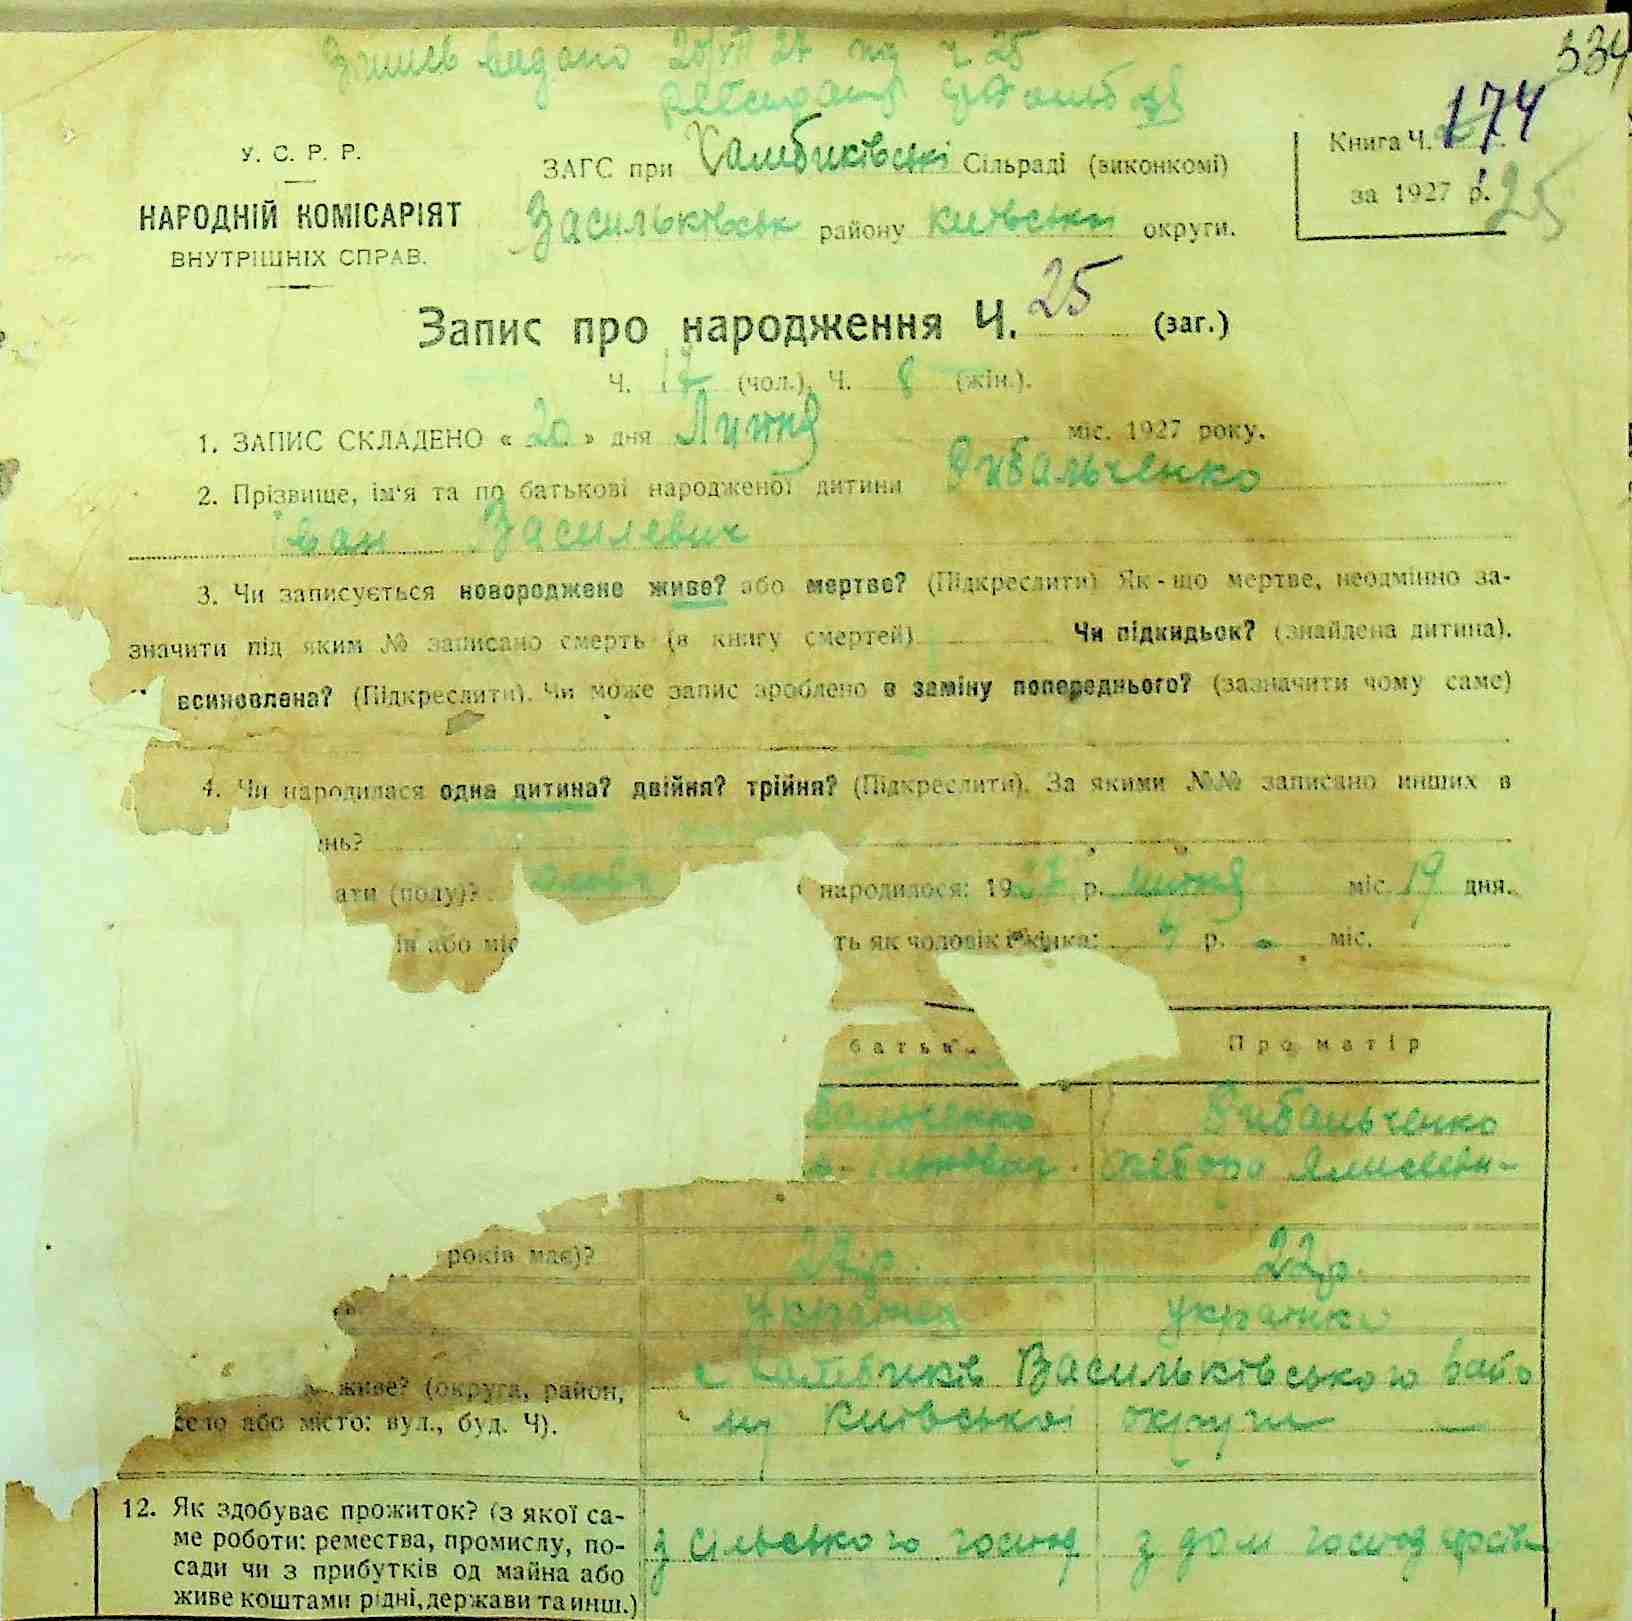 334
174
У. С. Р. Р.
НАРОДНІЙ КОМІСАРІЯТ
ВНУТРІШНІХ СПРАВ.
ЗАГС при Хамбиківські Сільраді (виконкомі)
Васильківськ району Київськи округи.
Книга Ч.
за 1927 р. 25
Запис про народження Ч. 25 (заг.)
Ч. 17 (чол.), Ч. 8 (жін.).
1. ЗАПИС СКЛАДЕНО « 20 » дня Липня міс. 1927 року.
2. Прізвище, ім'я та по батькові народженої дитини Рибальченко
Іван Василевич
3. Чи записується новороджене живе? або мертве? (Підкреслити) Як-що мертве, неодмінно за-
значити під яким № записано смерть (в книгу смертей) Чи підкидьок? (знайдена дитина).
всиновлена? (Підкреслити). Чи може запис зроблено в заміну попереднього? (зазначити чому саме)
4. Чи народилася одна дитина? двійня? трійня? (Підкреслити). За якими №№ записано инших в
нь?
ати (полу)? народилося: 1927 р. липня міс. 19 дня.
ін або міс ть як чоловік і жінка: р. міс.
батька Про матір
бальченко Рибальченко
років має)? 22р.
Українец Українка
живе? (округа, район, с Васильківського райо
село або місто: вул., буд. Ч). ну Київської округи
12. Як здобуває прожиток? (з якої са-
ме роботи: ремества, промислу, по-
сади чи з прибутків од майна або
живе коштами рідні, держави та инш.)
з сільського господ з дом господарства